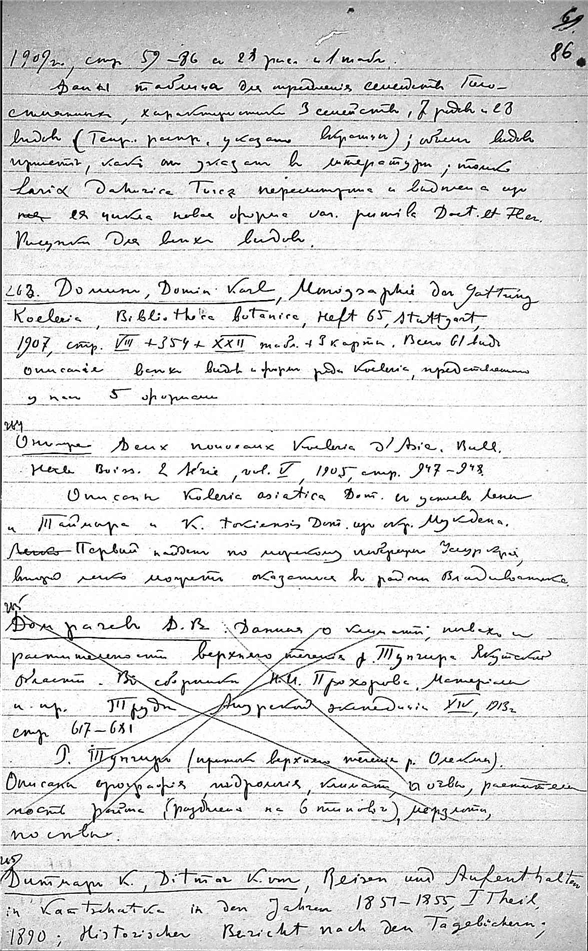 69.
86.
1909 г., стр. 59–86 с 28 рис. и 1 табл.
Даны таблица для определения семейств Голо-
семянных, характеристика 3 семейств, 7 родов и 23
видов (Геогр. распр. указано вкратце); объем видов
принят, как он указан в литературе; только
Larix Dahurica Turcz пересмотрена и выделена
её новая форма var. pumila Doct. et Fler.
Рисунки для всех видов.
263. Домин, Domin Karl, Monographie der Gattung
Koeleria, Bibliotheca botanica, Heft 65, Stuttgart,
1907, стр. VIII + 354 + XXII табл. + 3 карты. Всего 61 вид
описание всех видов и форм рода Koeleria, представленного
у нас 5 формами
264
Deux nouveaux Koeleria d'Asie. Bull.
Herb Boiss. 2 Série, vol. V, 1905, стр. 947–948.
Описаны Koleria asiatica Dom. с устьев Лены
и Таймыра и K. tokiensis Dom. из окр. Мукдена.
Первый найден по морскому побережью
второй легко может оказаться в районе Владивостока
265
Домрачев Д.В. Данные о климате, почвах и
растительности верхнего течения р. Тунгира Якутской
области. В сборнике Н.И. Прохорова, Материалы
и пр. Труды Амурской экспедиции XIV, 1913 г.
стр 617–681
Р. Тунгир (приток верхнего течения р. Олекмы).
Описана орография, гидрология, климат, почвы, раститель
ность района (разделена на 6 типов), мерзлота,
почвы.
265
Дитмар К., Ditmar K. von, Reisen und Aufenthalten
in Kamtschatka in den Jahren 1851–1855, I Theil,
1890; Historischer Bericht nach den Tagebüchern;